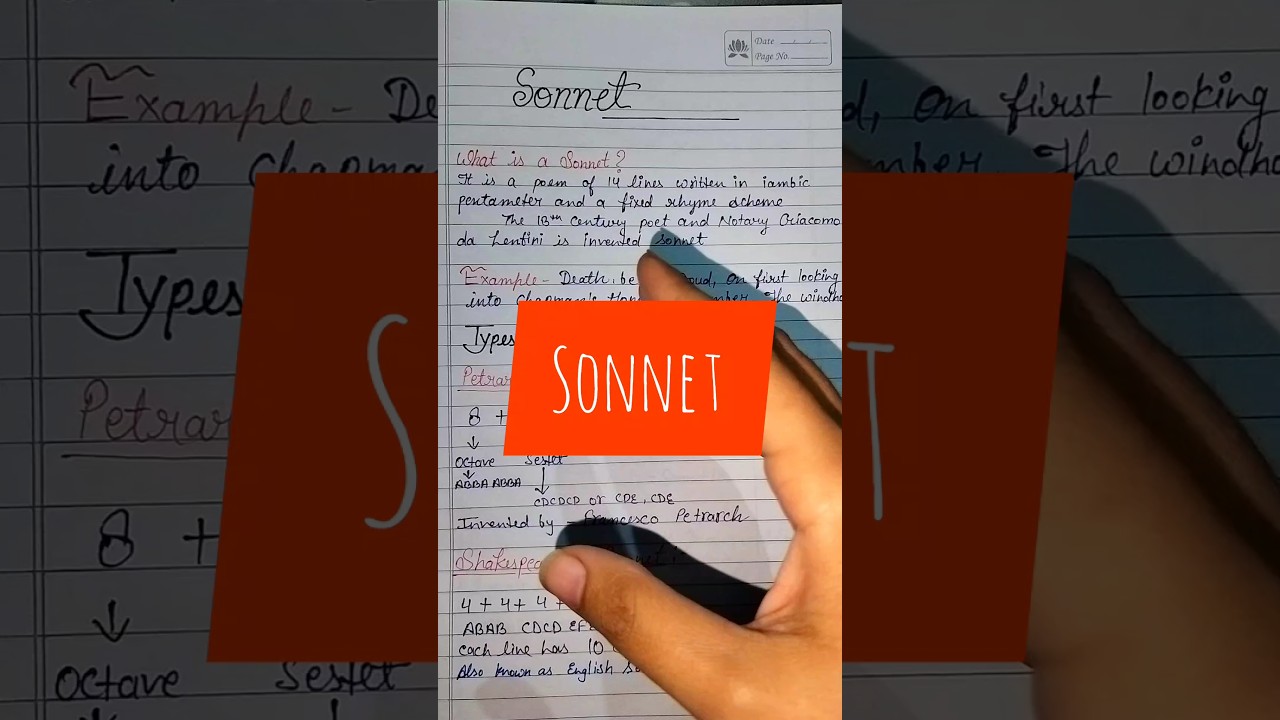 Date
Page No.
Sonnet
What is a Sonnet?
It is a poem of 14 lines written in iambic
pentameter and a fixed rhyme scheme
The 13th Century poet and Notary Giacomo
da Lentini is invented sonnet
Example - Death, be oud, on first looking
into Chapman's Hom mber, The windho
Types
Petrar
8 +
Octave Sestet
ABBA ABBA
CDCDCD or CDE, CDE
Invented by - Francesco Petrarch
Shakespea net :
4 + 4 + 4 +
ABAB CDCD EFE
each line has 10
Also known as English So
SONNET
Example - De d, on first looking
into Chapma mber, The windho
Types
Petrar
8 +
Octave Sestet
S T